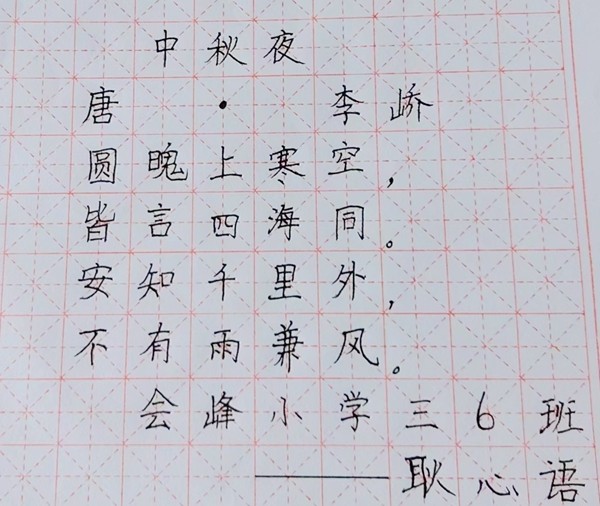 中秋夜
唐·李峤
圆魄上寒空，
皆言四海同。
安知千里外，
不有雨兼风。
会峰小学三6班
——耿心语